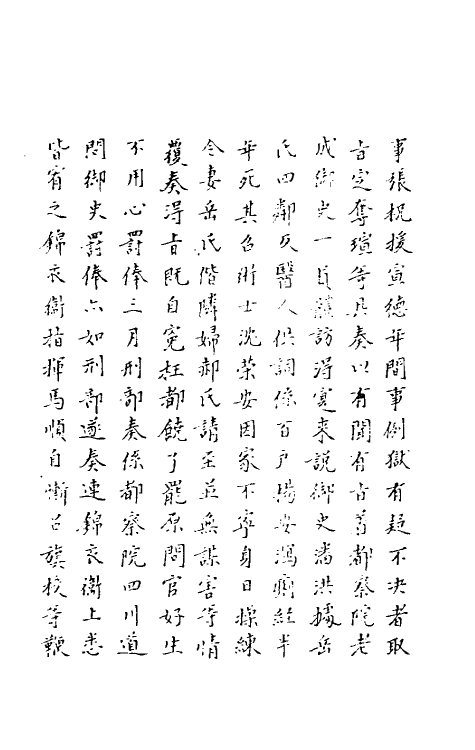 事張柷援宣德年間事例獄有疑不决者取
旨定奪瑄等具奏以有聞有旨着都察院老
成御史一員體訪得寔来說御史潘洪據岳
氏四鄰及醫人供詞係百戶楊安瀉痢經半
年死其召術士沈荣安因家不寧身日操練
令妻岳氏偕隣婦郝氏請至並無謀害等情
覆奏得旨既自寃枉都饒了罷原問官好生
不用心罰俸三月刑部奏係都察院四川道
問御史罰俸亦如刑部遂奏連錦衣衞上悉
皆宥之錦衣衞指揮馬順自慚召旗校等鞭